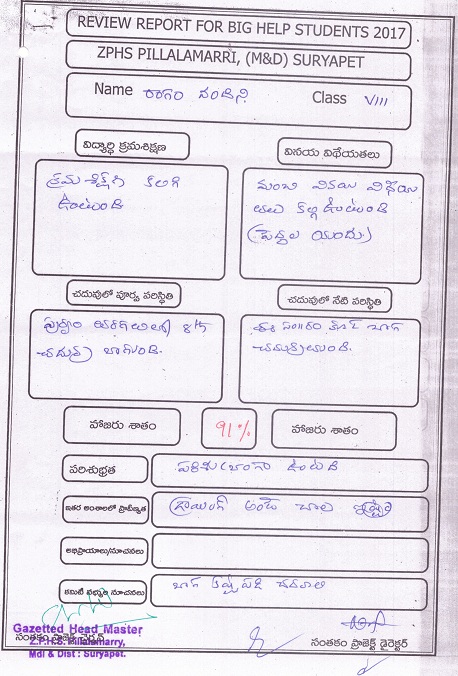 REVIEW REPORT FOR BIG HELP STUDENTS 2017
ZPHS PILLALAMARRI, (M&D) SURYAPET
Name రాగం నందిని Class VIII
విద్యార్థి క్రమశిక్షణ
వినయ విధేయతలు
క్రమశిక్షణ కలిగి
ఉంటుంది
మంచి వినయ విధేయ
తలు కల్గి ఉంటుంది
(పెద్దల యందు)
చదువులో పూర్వ పరిస్థితి
చదువులో నేటి పరిస్థితి
పూర్వం
చదువు బాగుంది.
ఈ సం॥రం కూడ బాగ
చదువుతుంది.
హాజరు శాతం
91%
హాజరు శాతం
పరిశుభ్రత
పరిశుభ్రంగా ఉంటుంది
ఇతర అంశాలలో ప్రావీణ్యత
డ్రాయింగ్ అంటే చాల ఇష్టం
అభిప్రాయాలు/సూచనలు
కమిటీ సభ్యుల సూచనలు
బాగ కష్టపడి చదవాలి
Gazetted Head Master
Z.P.H.S. Pillalamarry,
Mdl & Dist : Suryapet.
సంతకం ప్రాజెక్ట్ చైర్మన్
సంతకం ప్రాజెక్ట్ డైరెక్టర్